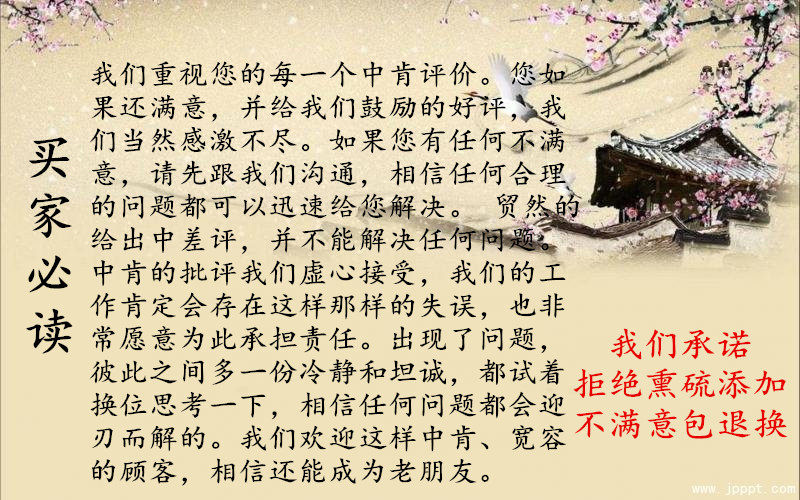 买家必读
我们重视您的每一个中肯评价。您如
果还满意，并给我们鼓励的好评，我
们当然感激不尽。如果您有任何不满
意，请先跟我们沟通，相信任何合理
的问题都可以迅速给您解决。 贸然的
给出中差评，并不能解决任何问题。
中肯的批评我们虚心接受，我们的工
作肯定会存在这样那样的失误，也非
常愿意为此承担责任。出现了问题，
彼此之间多一份冷静和坦诚，都试着
换位思考一下，相信任何问题都会迎
刃而解的。我们欢迎这样中肯、宽容
的顾客，相信还能成为老朋友。
我们承诺
拒绝熏硫添加
不满意包退换
www.jpppt.com